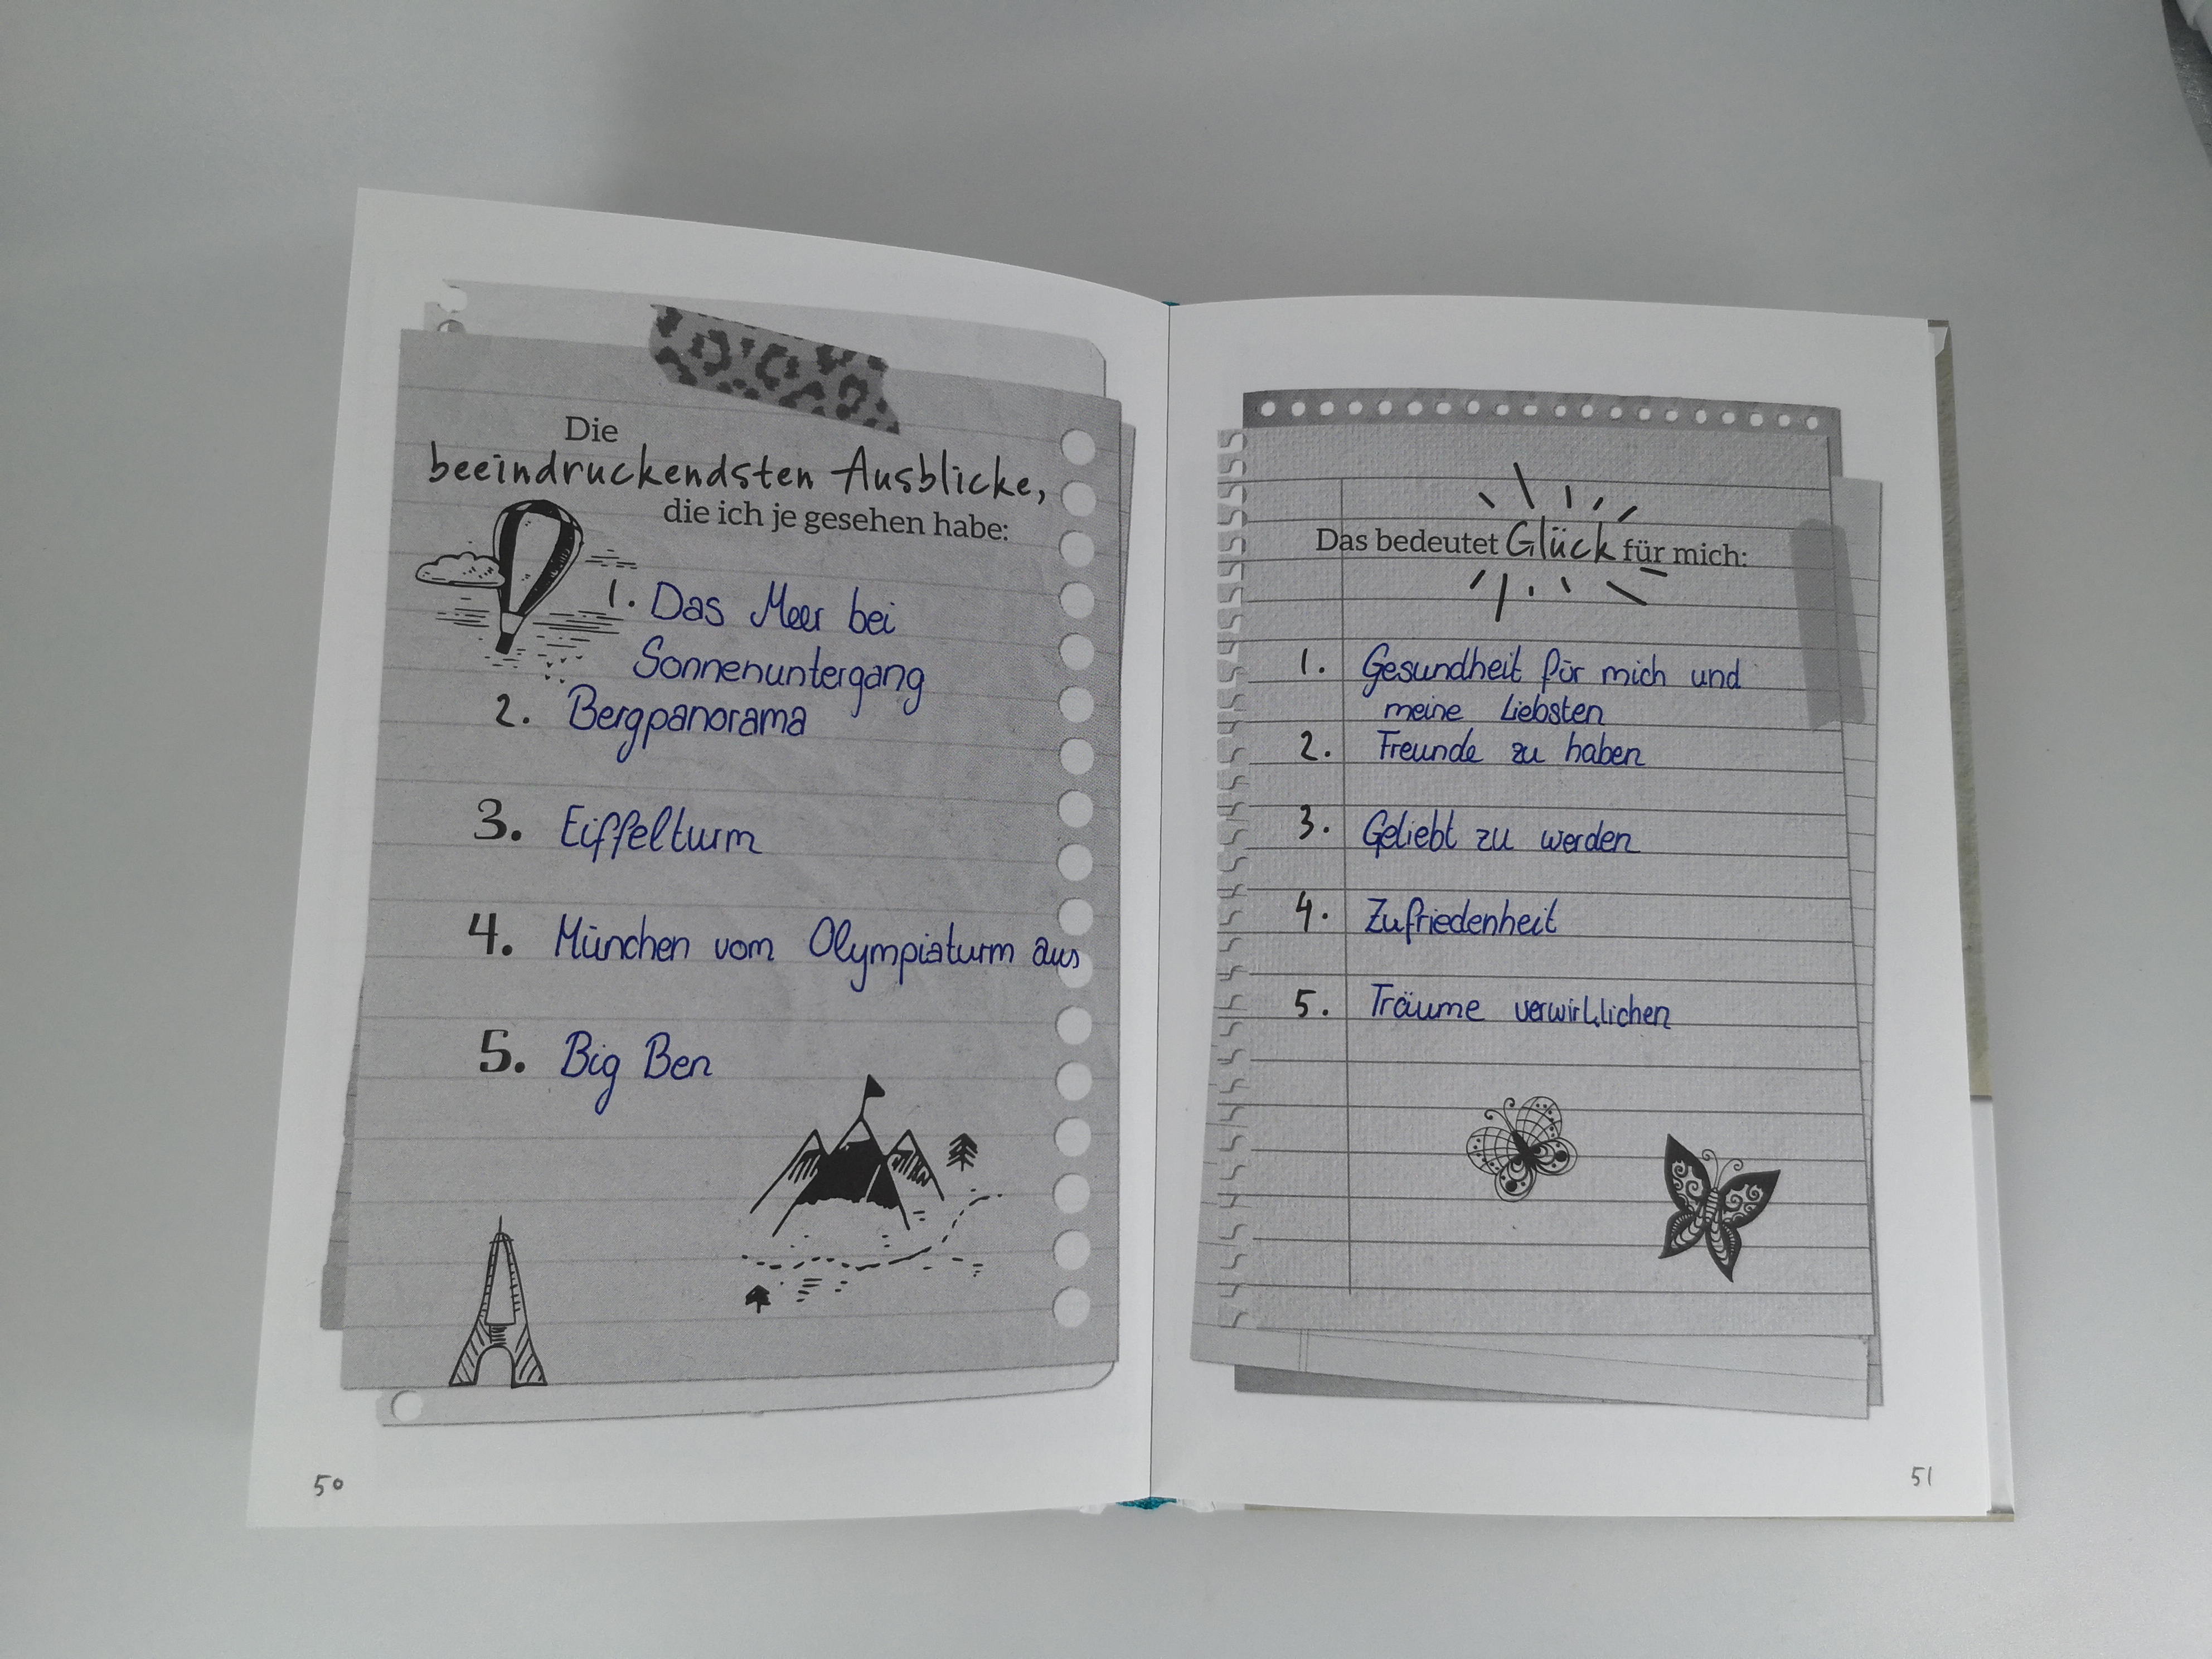 Die
beeindruckendsten Ausblicke,
die ich je gesehen habe:
1. Das Meer bei
Sonnenuntergang
2. Bergpanorama
3. Eiffelturm
4. München vom Olympiaturm aus
5. Big Ben
50
Das bedeutet Glück für mich:
1. Gesundheit für mich und
meine Liebsten
2. Freunde zu haben
3. Geliebt zu werden
4. Zufriedenheit
5. Träume verwirklichen
51